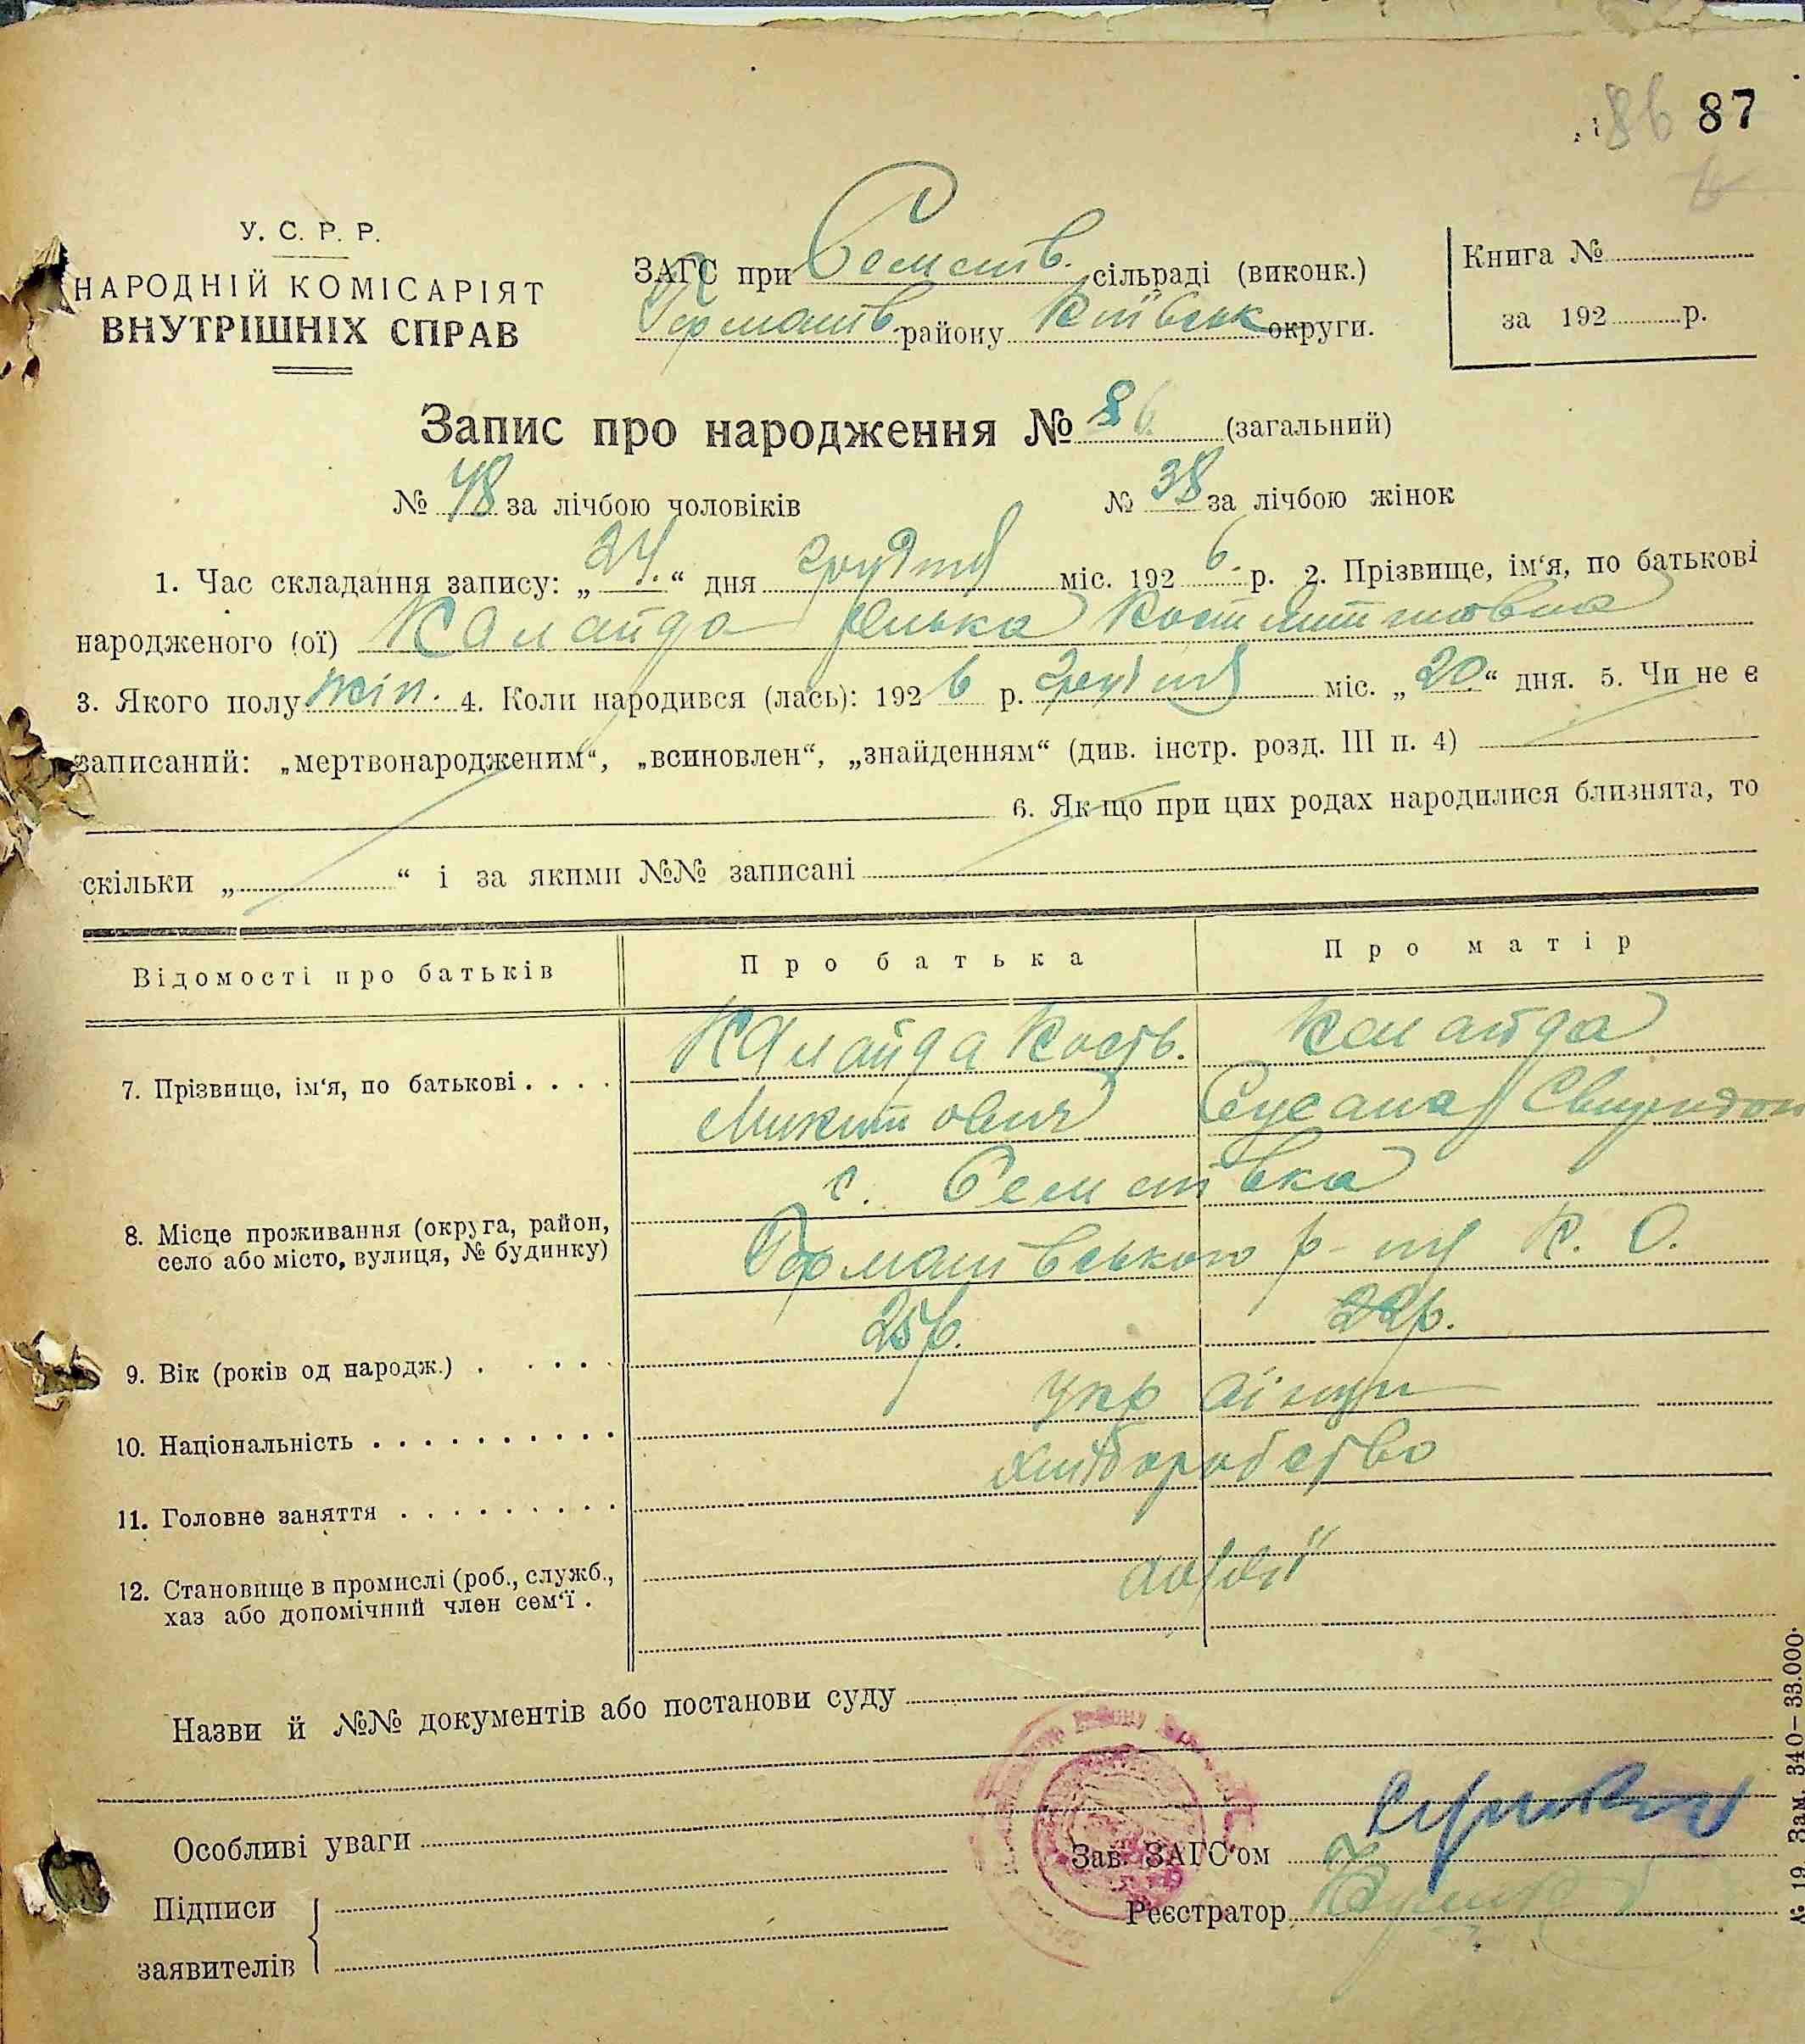 86 87
У. С. Р. Р.
НАРОДНІЙ КОМІСАРІЯТ
ВНУТРІШНІХ СПРАВ
ЗАГС при Семенів. сільраді (виконк.)
Германів. району Київськ округи.
Книга №
за 192 р.
Запис про народження № 86. (загальний)
№ 48 за лічбою чоловіків № 38 за лічбою жінок
1. Час складання запису: „24.“ дня грудня міс. 1926. р. 2. Прізвище, ім‘я, по батькові
народженого (ої) Калайда Костянтиновна
3. Якого полу жін. 4. Коли народився (лась): 1926 р. грудня міс. „20.“ дня. 5. Чи не є
записаний: „мертвонародженим“, „всиновлен“, „знайденням“ (див. інстр. розд. III п. 4)
6. Як що при цих родах народилися близнята, то
скільки „ “ і за якими №№ записані
Відомості про батьків Про батька Про матір
7. Прізвище, ім‘я, по батькові Калайда Кость. Микитович Калайда Сусана Свиридон
8. Місце проживання (округа, район, село або місто, вулиця, № будинку) с. Семенівка
Германівського р-ну К. О.
9. Вік (років од народж.) 25р. 22р.
10. Національність україн
11. Головне заняття хліборобство
12. Становище в промислі (роб., служб.,
хаз або допомічний член сем‘ї.
Назви й №№ документів або постанови суду
Особливі уваги
Зав. ЗАГС‘ом
Підписи
заявителів
Реєстратор
№ 19. Зам. 340–33.000.